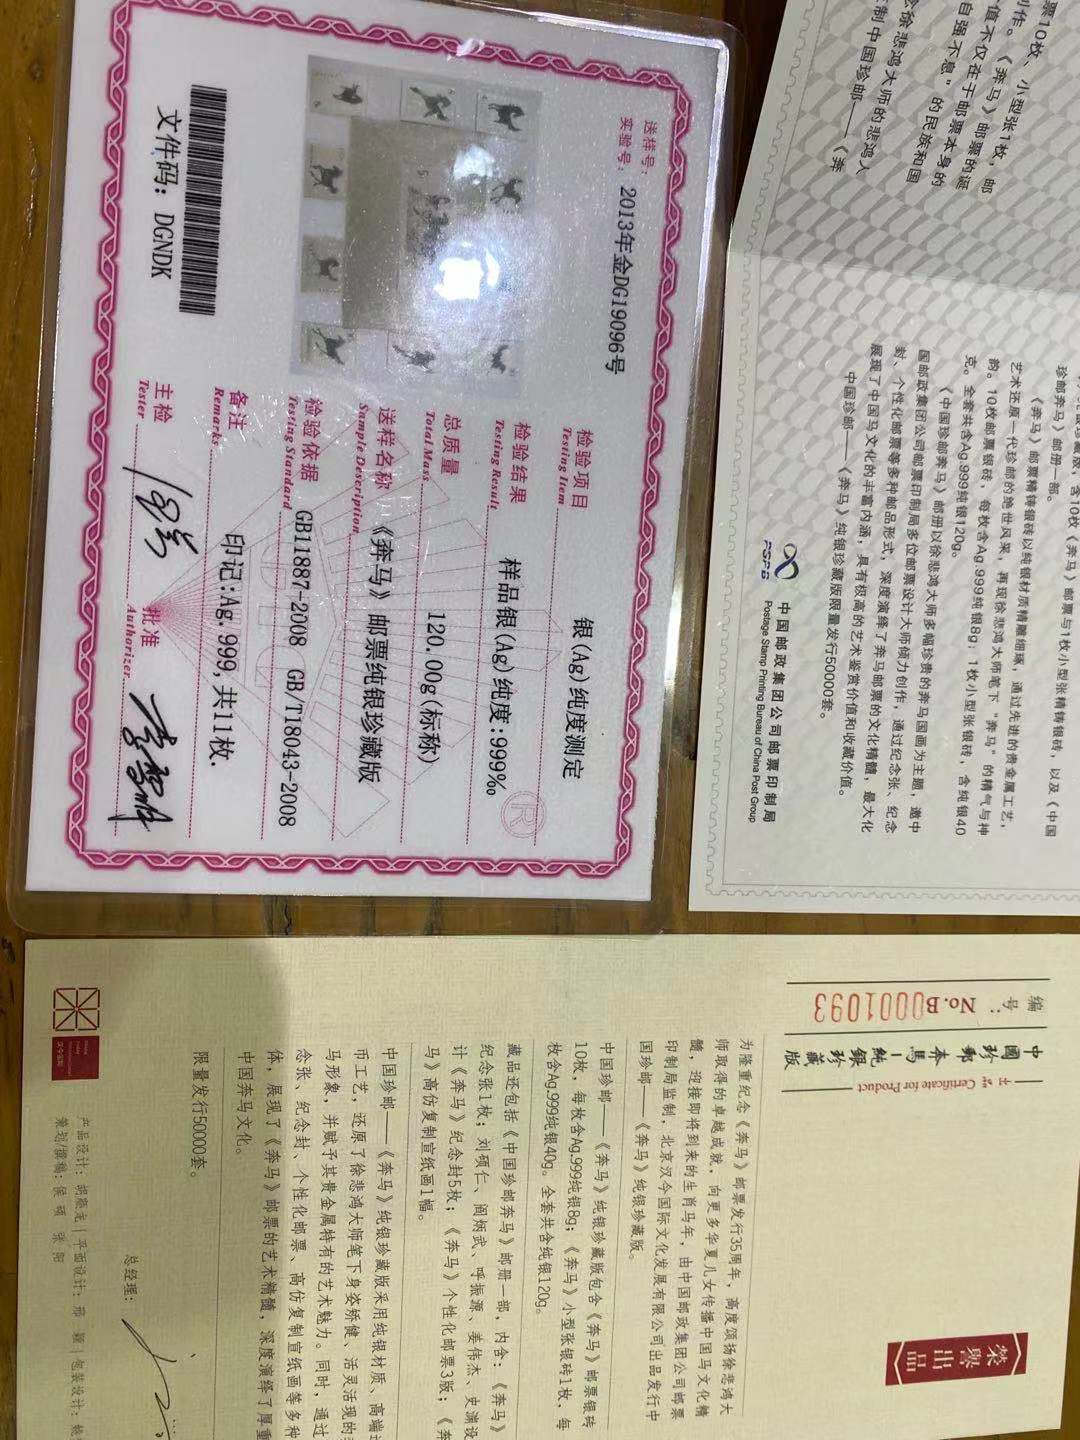 送样号:
实验号: 2013年金DG19096号
检验项目 银(Ag)纯度测定
Testing Item
检验结果 样品银(Ag)纯度:999‰
Testing Result
总质量 120.00g(标称)
Total Mass
送样名称 《奔马》邮票纯银珍藏版
Sample Description
检验依据 GB11887-2008 GB/T18043-2008
Testing Standard
备注 印记:Ag.999,共11枚.
Remarks
主检
Tester
批准
Authorizer
文件码: DGNDK
®
票10枚、小型张1枚,邮
《奔马》邮票的诞
值不仅在于邮票本身的
自强不息”的民族和国
念徐悲鸿大师的悲鸿人
制中国珍邮——《奔
含10枚《奔马》邮票与1枚小型张精铸银砖,以及《中国
珍邮奔马》邮册一部。
《奔马》邮票精铸银砖以纯银材质精雕细琢,通过先进的贵金属工艺,
艺术还原一代珍邮的绝世风采,再现徐悲鸿大师笔下“奔马”的精气与神
韵。10枚邮票银砖,每枚含Ag.999纯银8g;1枚小型张银砖,含纯银40
克。全套共含Ag.999纯银120g。
《中国珍邮奔马》邮册以徐悲鸿大师多幅珍贵的奔马国画为主题,邀中
国邮政集团公司邮票印制局多位邮票设计大师倾力创作,通过纪念张、纪念
封、个性化邮票等多种邮品形式,深度演绎了奔马邮票的文化精髓,最大化
展现了中国马文化的丰富内涵,具有极高的艺术鉴赏价值和收藏价值。
中国珍邮——《奔马》纯银珍藏版限量发行50000套。
PSPB
中国邮政集团公司邮票印制局
Postage Stamp Printing Bureau of China Post Group
编号: No.B0001093
中國珍郵奔馬|純銀珍藏版
出品 Certificate for Product
榮譽出品
为隆重纪念《奔马》邮票发行35周年,高度颂扬徐悲鸿大
师取得的卓越成就,向更多华夏儿女传播中国马文化精
髓,迎接即将到来的生肖马年,由中国邮政集团公司邮票
印制局监制,北京汉今国际文化发展有限公司出品发行中
国珍邮——《奔马》纯银珍藏版。
中国珍邮——《奔马》纯银珍藏版包含《奔马》邮票银砖
10枚,每枚含Ag.999纯银8g;《奔马》小型张银砖1枚,每
枚含Ag.999纯银40g。全套共含纯银120g。
藏品还包括《中国珍邮奔马》邮册一部,内含:《奔马》
纪念张1枚;刘硕仁、阎炳武、呼振源、姜伟杰、史渊设
计《奔马》纪念封5枚;《奔马》个性化邮票3版;《奔
马》高仿复制宣纸画1幅。
中国珍邮——《奔马》纯银珍藏版采用纯银材质、高端
币工艺,还原了徐悲鸿大师笔下身姿矫健、活灵活现的
马形象,并赋予其贵金属特有的艺术魅力。同时,通过
念张、纪念封、个性化邮票、高仿复制宣纸画等多种
体,展现了《奔马》邮票的艺术精髓,深度演绎了厚重
中国奔马文化。
限量发行50000套。
总经理:
产品设计:胡雁龙|平面设计:邢颖|包装设计:
策划/撰稿:侯硕 张阳